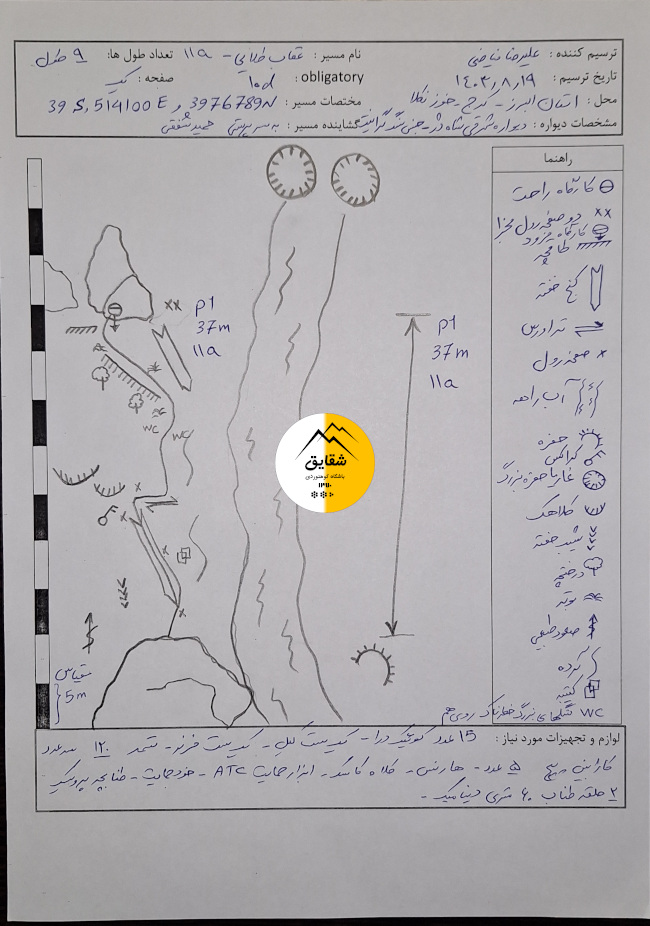 ترسیم کننده : علیرضا فیاضی نام مسیر : عقاب طلایی - 11a تعداد طول ها: ۹ طول
تاریخ ترسیم : ۱۴۰۳٫۸٫۱۹ obligatory : 10d صفحه : یک
محل : استان البرز - کرج - خوزنکلا مختصات مسیر : 39 S, 514100 E و 3976789N
مشخصات دیواره : دیواره شرقی شاه دژ - جنس سنگ گرانیت گشاینده مسیر : به سرپرستی حمید شفقی
راهنما
کارگاه راحت
دو صفحه رول مجزا
کارگاه فرود
طاقچه
کنج خفته
تراورس
صفحه رول
آب راهه
حفره
کراکس
غار یا حفره بزرگ
کلاهک
شیب خفته
درختچه
بوته
صعود طبیعی
گرده
کتیبه
WC سنگهای بزرگ خطرناک روی هم
p1
37m
11a
p1
37m
11a
WC
WC
مقیاس
5m
شقایق
باشگاه کوهنوردی
۱۳۹۰
لوازم و تجهیزات مورد نیاز : 15 عدد کوئیک درا - یک ست گل - یک ست فرند - تسمه ۱۲۰ سه عدد
کارابین پیچ ۵ عدد - هارنس - کلاه کاسک - ابزار حمایت ATC - خود حمایت - طنابچه پروسیک
۲ حلقه طناب ۶۰ متری دینامیک -